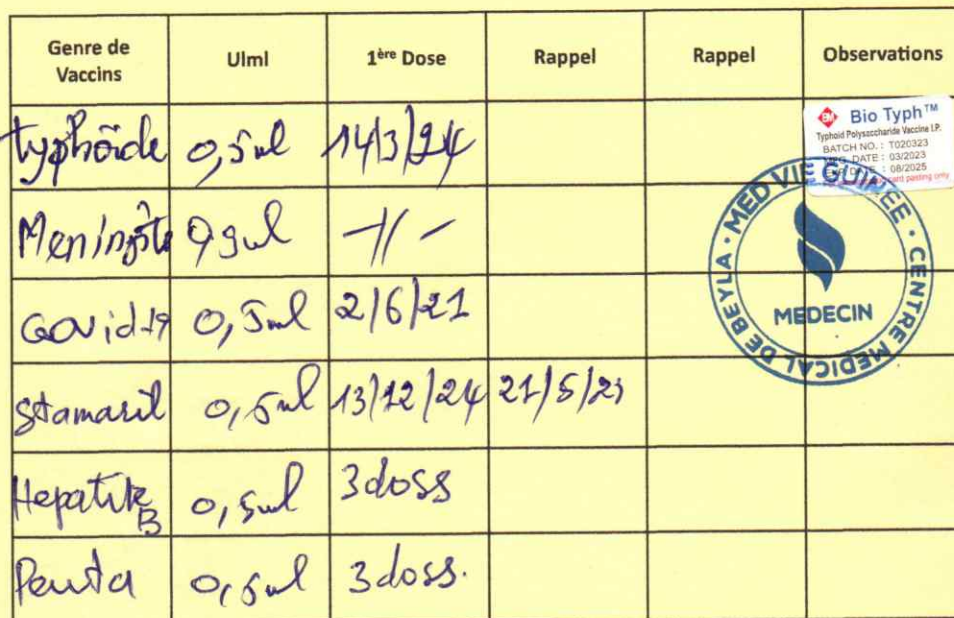 Genre de Vaccins UIml 1ère Dose Rappel Rappel Observations
Typhoïde 0,5ml 14/3/24
Bio Typh™
Typhoid Polysaccharide Vaccine I.P.
BATCH NO. : T020323
MFG. DATE : 03/2023
EXP. DATE : 08/2025
card pasting only
Meningite -//-
Covid-19 0,5ml 2/6/21
Stamaril 0,5ml 13/12/24 21/5/25
Hepatite B 0,5ml 3 doss
Penta 0,5ml 3 doss.
MED VIE GUINEE · CENTRE MEDICAL DE BEYLA ·
MEDECIN